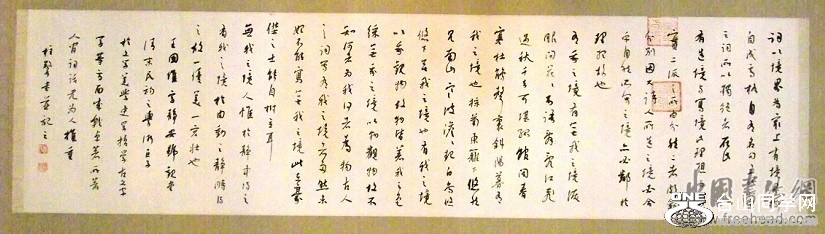 词以境界为最上有境
自成高格自有名句五
之词所以独绝者在
有造境有写境此理想
写实二派之所由分然二者颇难
分别因大诗人所造之境必合
乎自然所写之境亦必邻于
理想故也
有有我之境有无我之境泪
眼问花花不语乱红飞
过秋千去可堪孤馆闭春
寒杜鹃声里斜阳暮有
我之境也採菊东篱下悠然
见南山寒波澹澹起白鸟悠
悠下无我之境也有我之境
以我观物故物皆著我之色
彩无我之境以物观物故不
知何者为我何者为物古人
之词写有我之境者为多然未
始不能写无我之境此在豪
杰之士能自树立耳
无我之境人惟于静中得之
有我之境于由动之静时得
之故一优美一宏壮也
王国维字静安号观堂
清末民初之学
人间词话尤为人推重
中国书法网
合山同学网
www.freehead.com